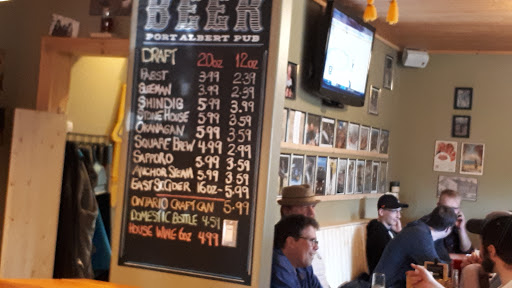 BEER
PORT ALBERT PUB
DRAFT 20oz 12oz
PABST 3.99 2.39
SLEEMAN 3.99 2.39
SHINDIG 5.99 3.99
STONE HOUSE 5.99 3.59
OKANAGAN 5.99 3.59
SQUARE BREW 4.99 3.59
SAPPORO 5.99 3.59
ANCHOR STEAM 5.99 3.59
EAST SIDE CIDER 16oz - 5.99
ONTARIO CRAFT CAN 5.99
DOMESTIC BOTTLE 4.59
HOUSE WINE 6oz 4.99